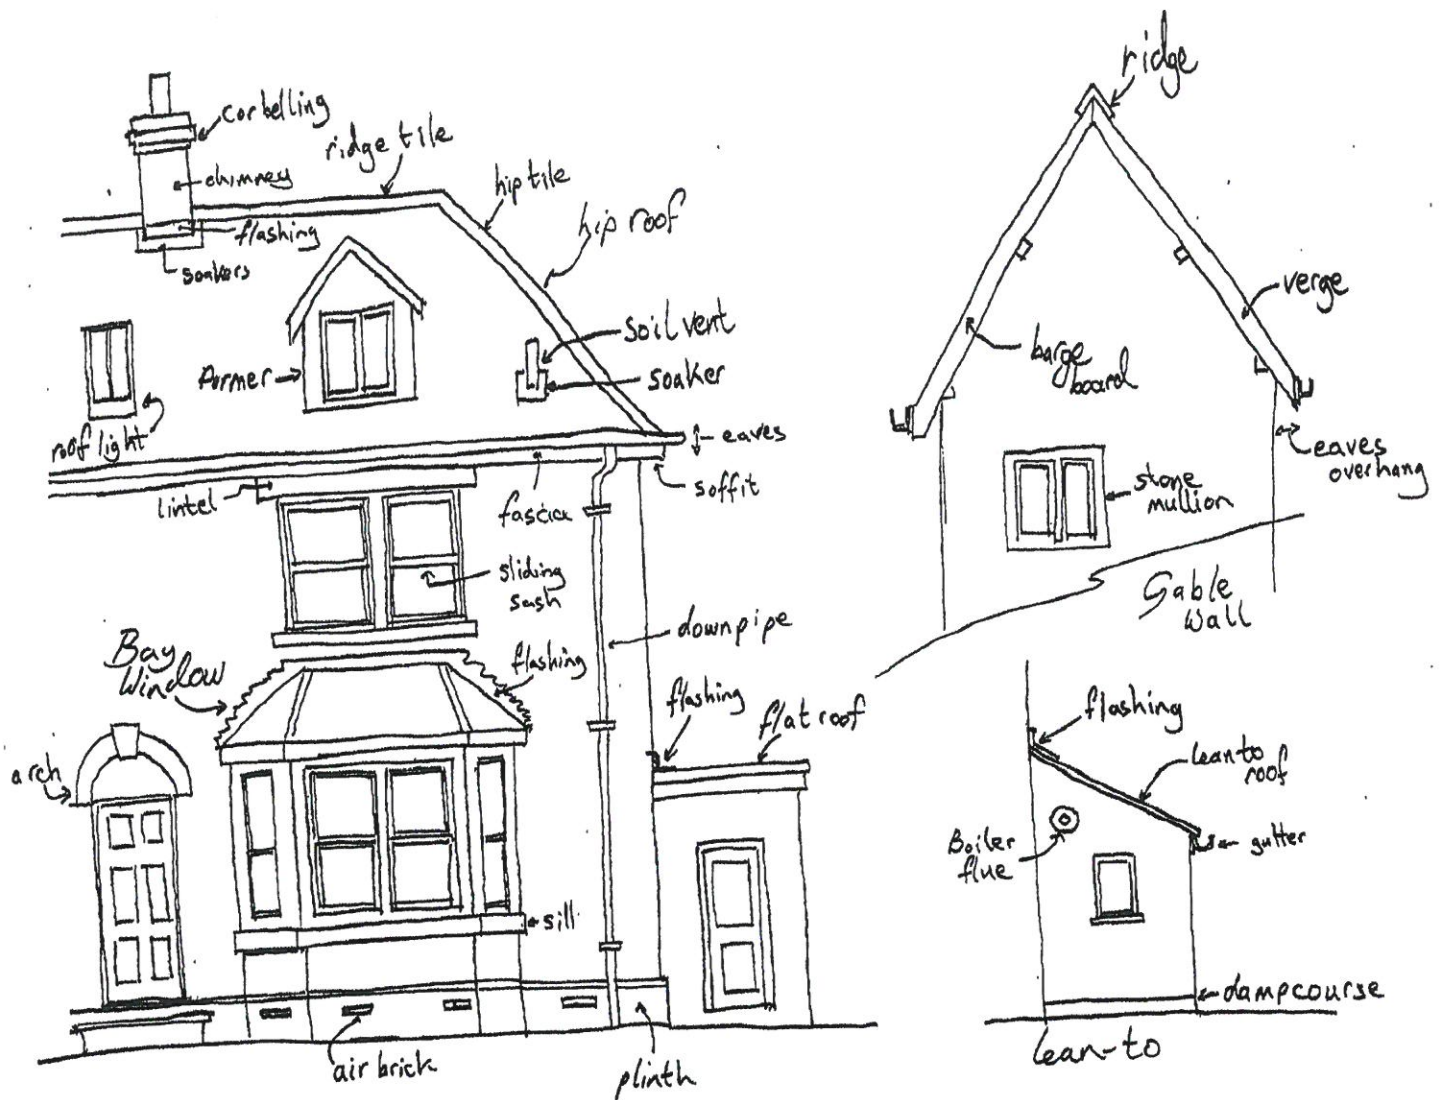 corbelling
ridge tile
chimney
hip tile
flashing
hip roof
soakers
soil vent
Dormer
soaker
roof light
eaves
soffit
lintel
fascia
sliding
sash
downpipe
Bay
Window
flashing
flashing
flat roof
arch
sill
air brick
plinth
ridge
verge
barge
board
eaves
overhang
stone
mullion
Gable
Wall
flashing
lean to
roof
Boiler
flue
gutter
dampcourse
lean-to